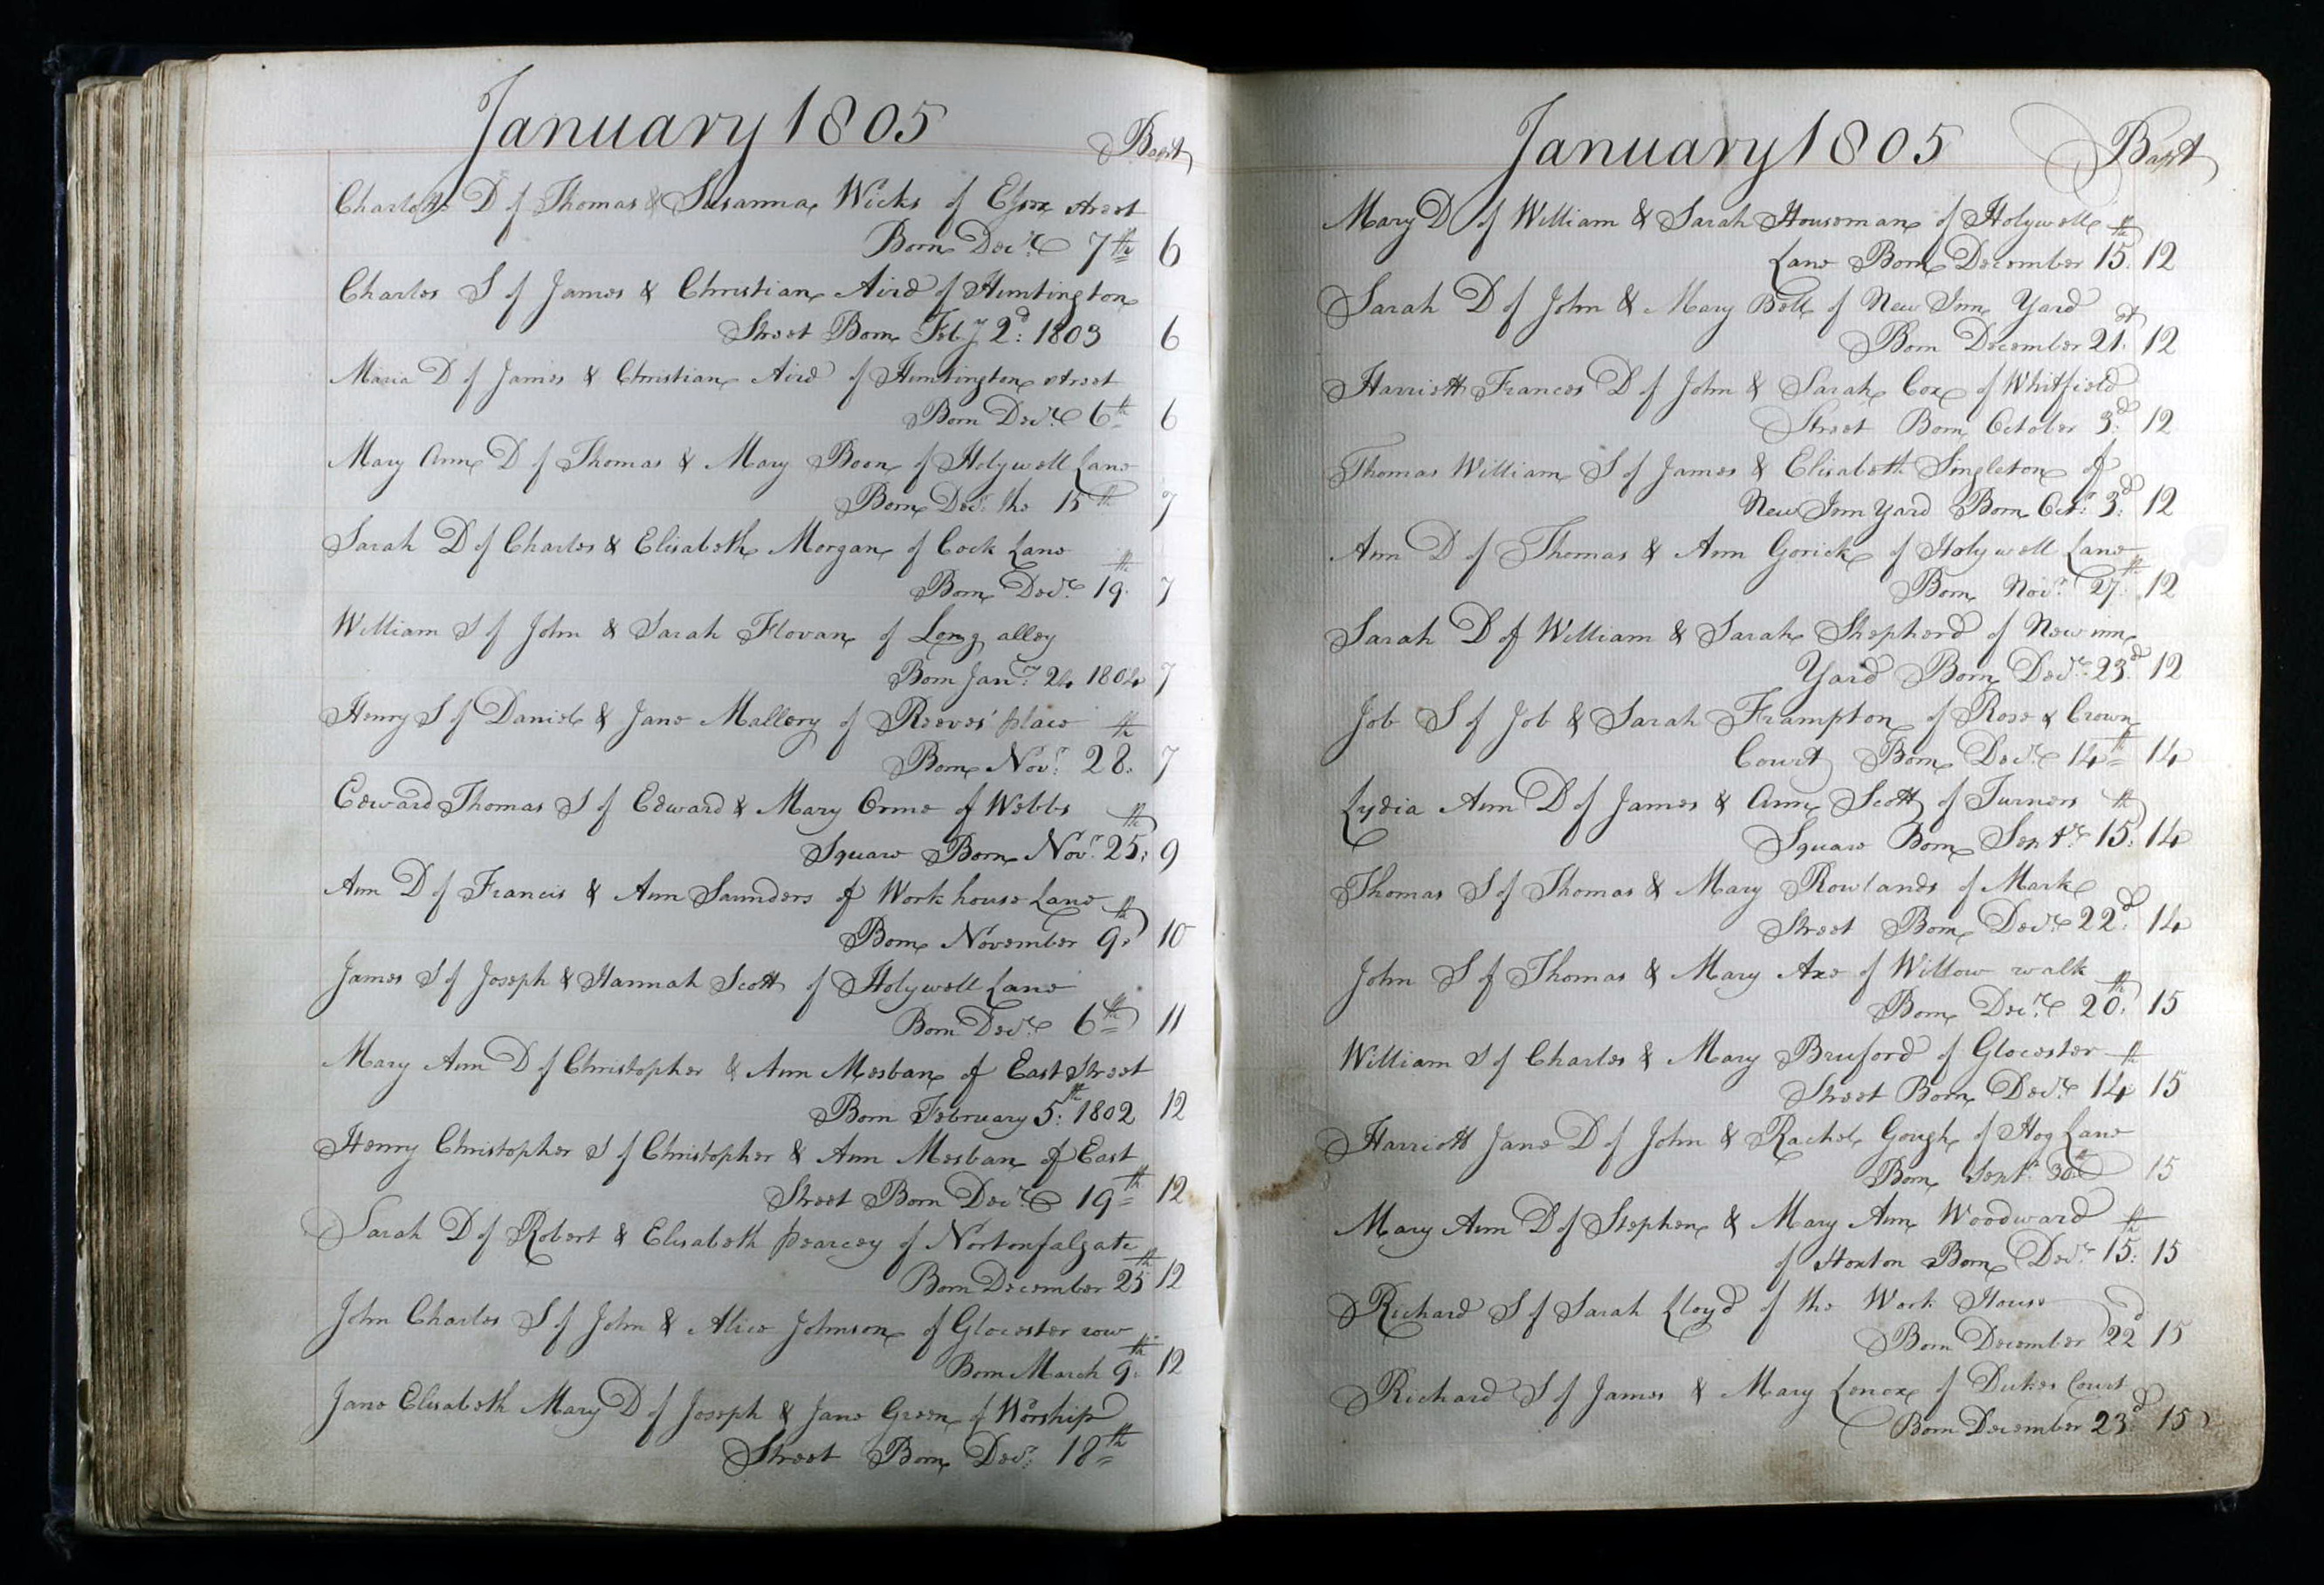 January 1805
Bapt
Charlotte D of Thomas & Susanna Wicks of Essex street
Born Decr. 7th 6
Charles S of James & Christian Aird of Huntington
Street Born Feby 2d: 1803 6
Maria D of James & Christian Aird of Huntington street
Born Decr. 6th 6
Mary Ann D of Thomas & Mary Boon of Holywell Lane
Born Decr. the 15th 7
Sarah D of Charles & Elisabeth Morgan of Cock Lane
Born Decr. 19th 7
William S of John & Sarah Flovan of Long alley
Born Jany. 24 1804 7
Henry S of Daniel & Jane Mallory of Reeves' place
Born Novr. 28th 7
Edward Thomas S of Edward & Mary Orme of Webbs
Square Born Novr. 25th 9
Ann D of Francis & Ann Saunders of Work house Lane
Born November 9th 10
James S of Joseph & Hannah Scott of Holywell Lane
Born Decr. 6th 11
Mary Ann D of Christopher & Ann Mesban of East Street
Born February 5th: 1802 12
Henry Christopher S of Christopher & Ann Mesban of East
Street Born Decr. 19th 12
Sarah D of Robert & Elisabeth pearcey of Nortonfalgate
Born December 25th 12
John Charles S of John & Alice Johnson of Glocester row
Born March 9th 12
Jane Elisabeth Mary D of Joseph & Jane Green of Worship
Street Born Decr. 18th
January 1805
Bapt
Mary D of William & Sarah Houseman of Holywell
Lane Born December 15th 12
Sarah D of John & Mary Bell of New Inn Yard
Born December 21st 12
Harriott Frances D of John & Sarah Cox of Whitfield
Street Born October 3d 12
Thomas William S of James & Elisabeth Singleton of
New Inn Yard Born Octr. 3d 12
Ann D of Thomas & Ann Gorick of Holywell Lane
Born Novr. 27th 12
Sarah D of William & Sarah Shepherd of New inn
Yard Born Decr. 23d 12
Job S of Job & Sarah Frampton of Rose & Crown
Court Born Decr. 14th 14
Lydia Ann D of James & Ann Scott of Turners
Square Born Septr. 15th 14
Thomas S of Thomas & Mary Rowlands of Mark
Street Born Decr. 22d 14
John S of Thomas & Mary Axe of Willow walk
Born Decr. 20th 15
William S of Charles & Mary Bruford of Glocester
Street Born Decr. 14th 15
Harriott Jane D of John & Rachel Gough of Hog Lane
Born Septr. 30th 15
Mary Ann D of Stephen & Mary Ann Woodward
of Hoxton Born Decr. 15th 15
Richard S of Sarah Lloyd of the Work House
Born December 22d 15
Richard S of James & Mary Lenox of Dukes Court
Born December 23d 15